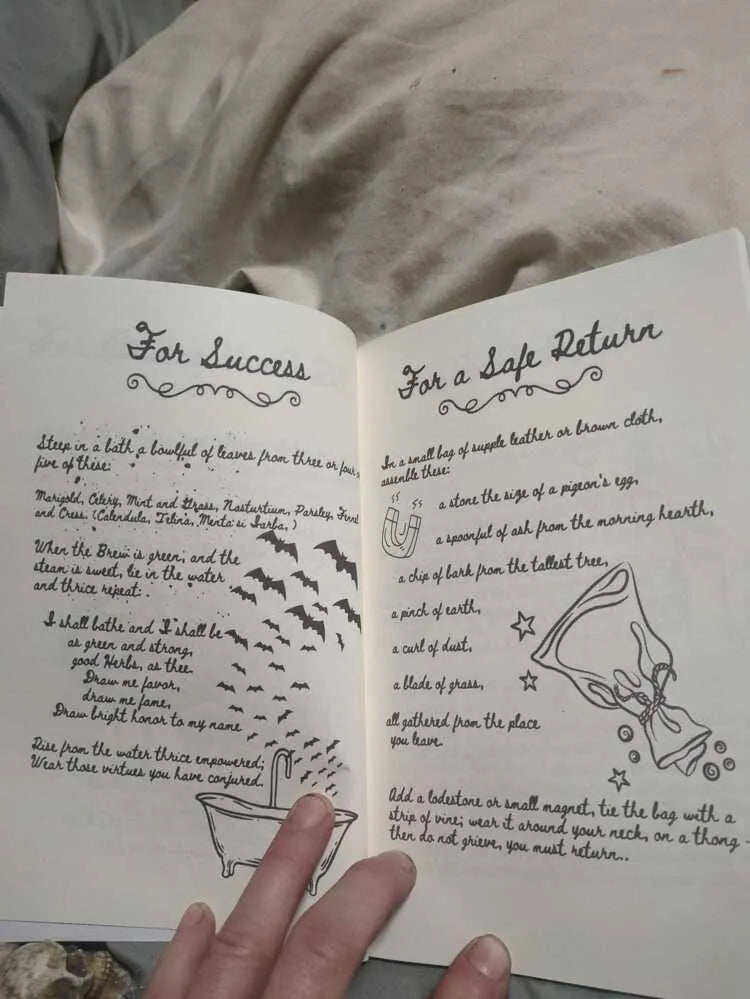 For Success
Steep in a bath a bowlful of leaves from three or four,
five of these:
Marigold, Celery, Mint and Grass, Nasturtium, Parsley,
and Cress. (Calendula, Telina, Menta si Iarba, )
When the Brew is green, and the
steam is sweet, lie in the water
and thrice repeat:
I shall bathe and I shall be
as green and strong,
good Herbs, as thee.
Draw me favor,
draw me fame,
Draw bright honor to my name
Rise from the water thrice empowered;
Wear those virtues you have conjured.
For a Safe Return
In a small bag of supple leather or brown cloth,
assemble these:
a stone the size of a pigeon's egg,
a spoonful of ash from the morning hearth,
a chip of bark from the tallest tree,
a pinch of earth,
a curl of dust,
a blade of grass,
all gathered from the place
you leave.
Add a lodestone or small magnet, tie the bag with a
strip of vine; wear it around your neck, on a thong -
then do not grieve, you must return..